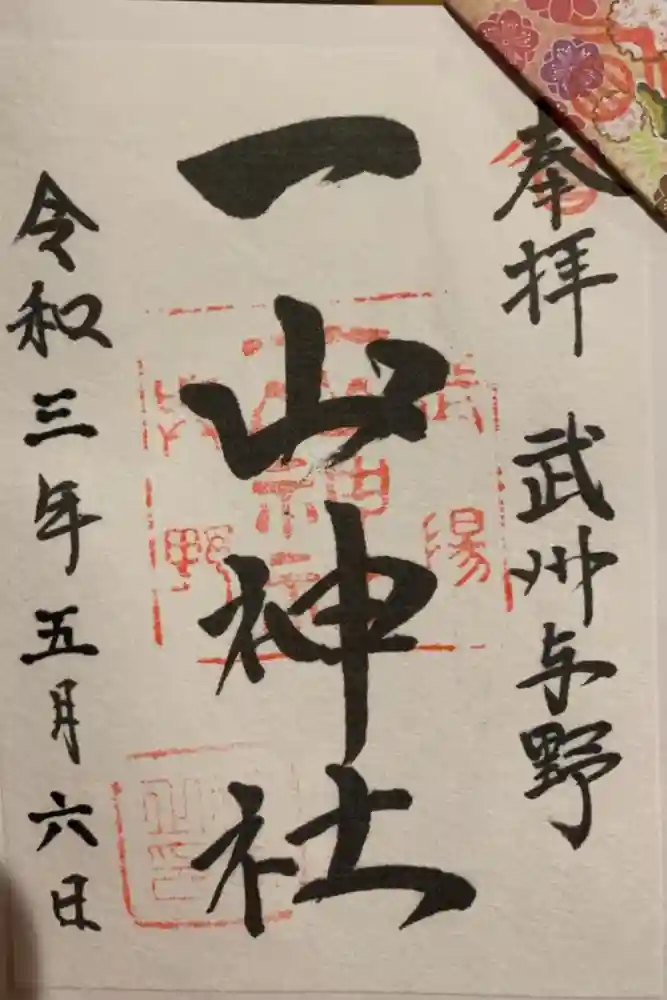 奉拝 武州与野
一山神社
令和三年五月六日